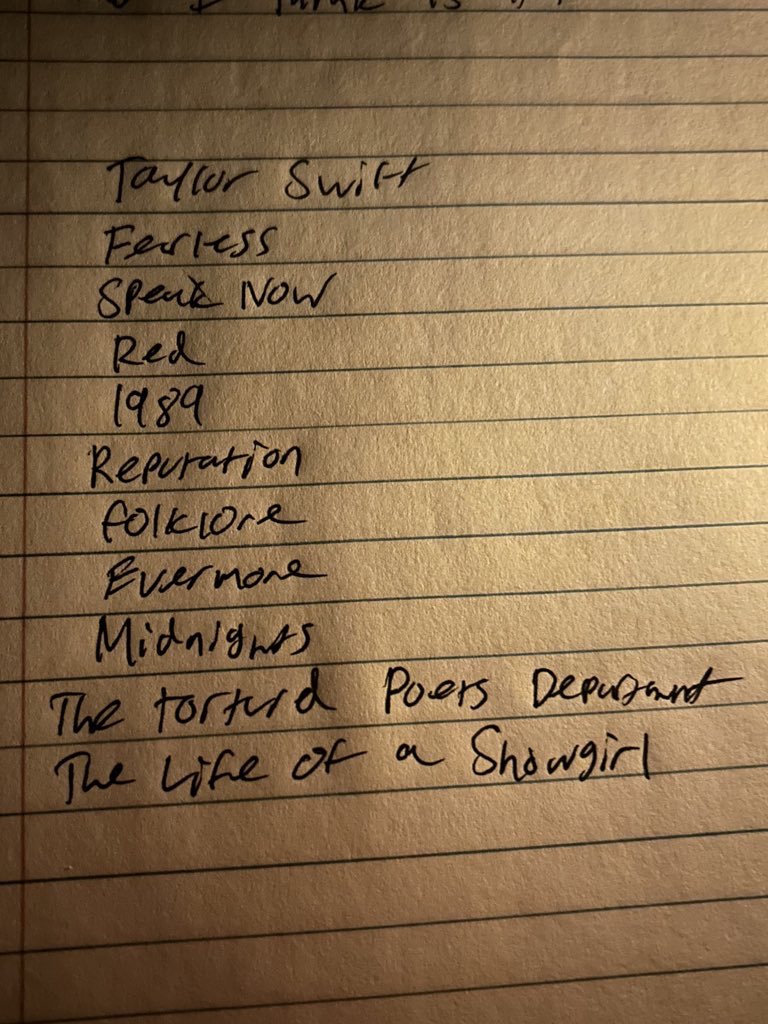 I think is
Taylor Swift
Fearless
Speak Now
Red
1989
Reputation
folklore
Evermore
Midnights
The torturd Poets Department
The Life of a Showgirl